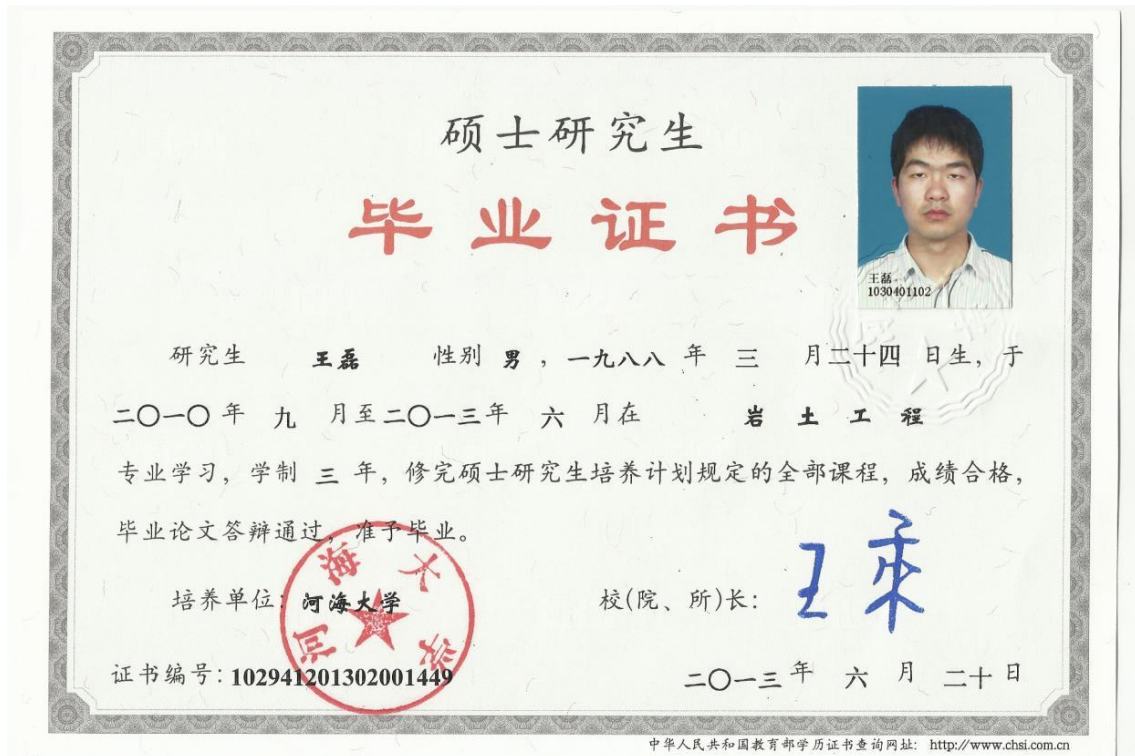 硕士研究生
毕业证书
王磊
1030401102
研究生 王磊 性别 男，一九八八 年 三 月二十四 日生，于
二〇一〇 年 九 月至二〇一三年 六 月在 岩土工程
专业学习，学制 三 年，修完硕士研究生培养计划规定的全部课程，成绩合格，
毕业论文答辩通过，准予毕业。
培养单位：河海大学 校(院、所)长：王乘
河海大学
证书编号：102941201302001449 二〇一三 年 六 月 二十 日
中华人民共和国教育部学历证书查询网址： http://www.chsi.com.cn